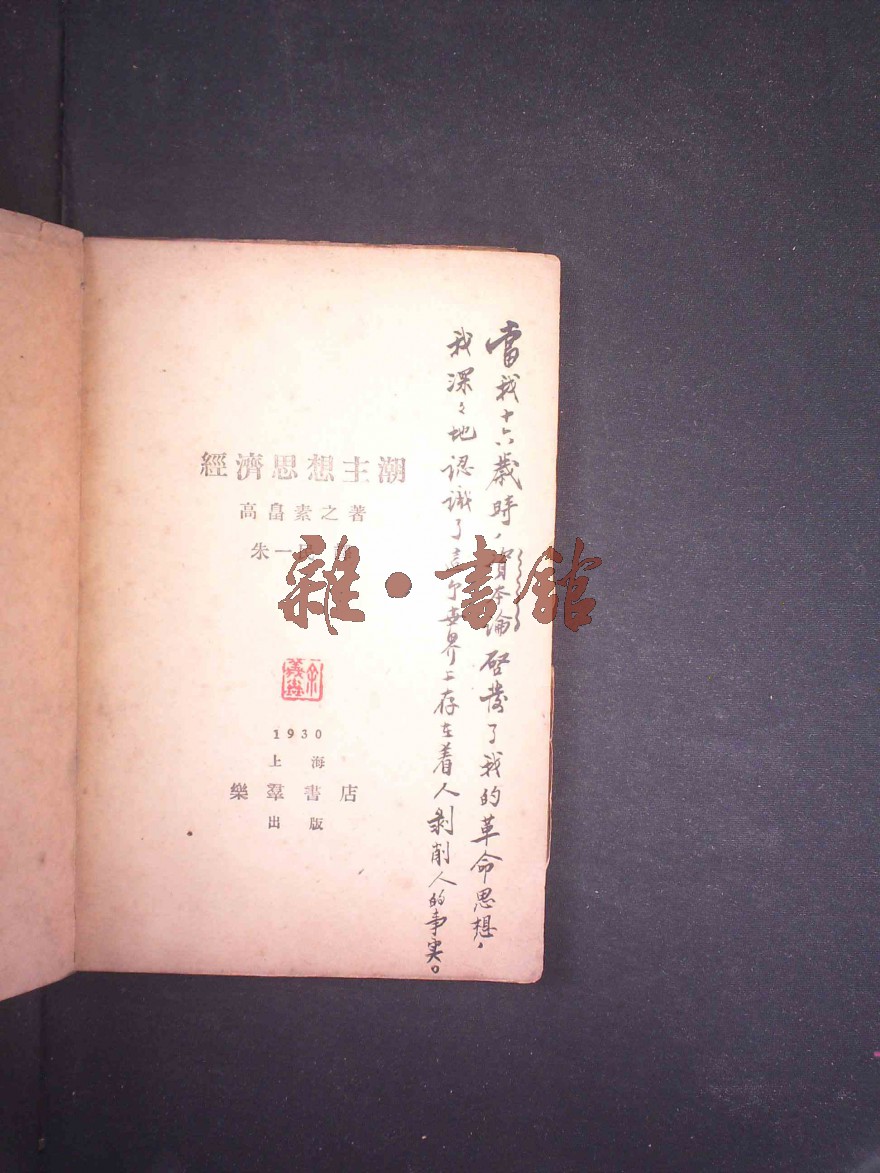 經濟思想主潮
高畠素之著
朱一民
1930
上海
樂羣書店
出版
當我十六歲時，資本論啓發了我的革命思想，
我深々地認識了這个世界上存在着人剥削人的事实。
雜·書館